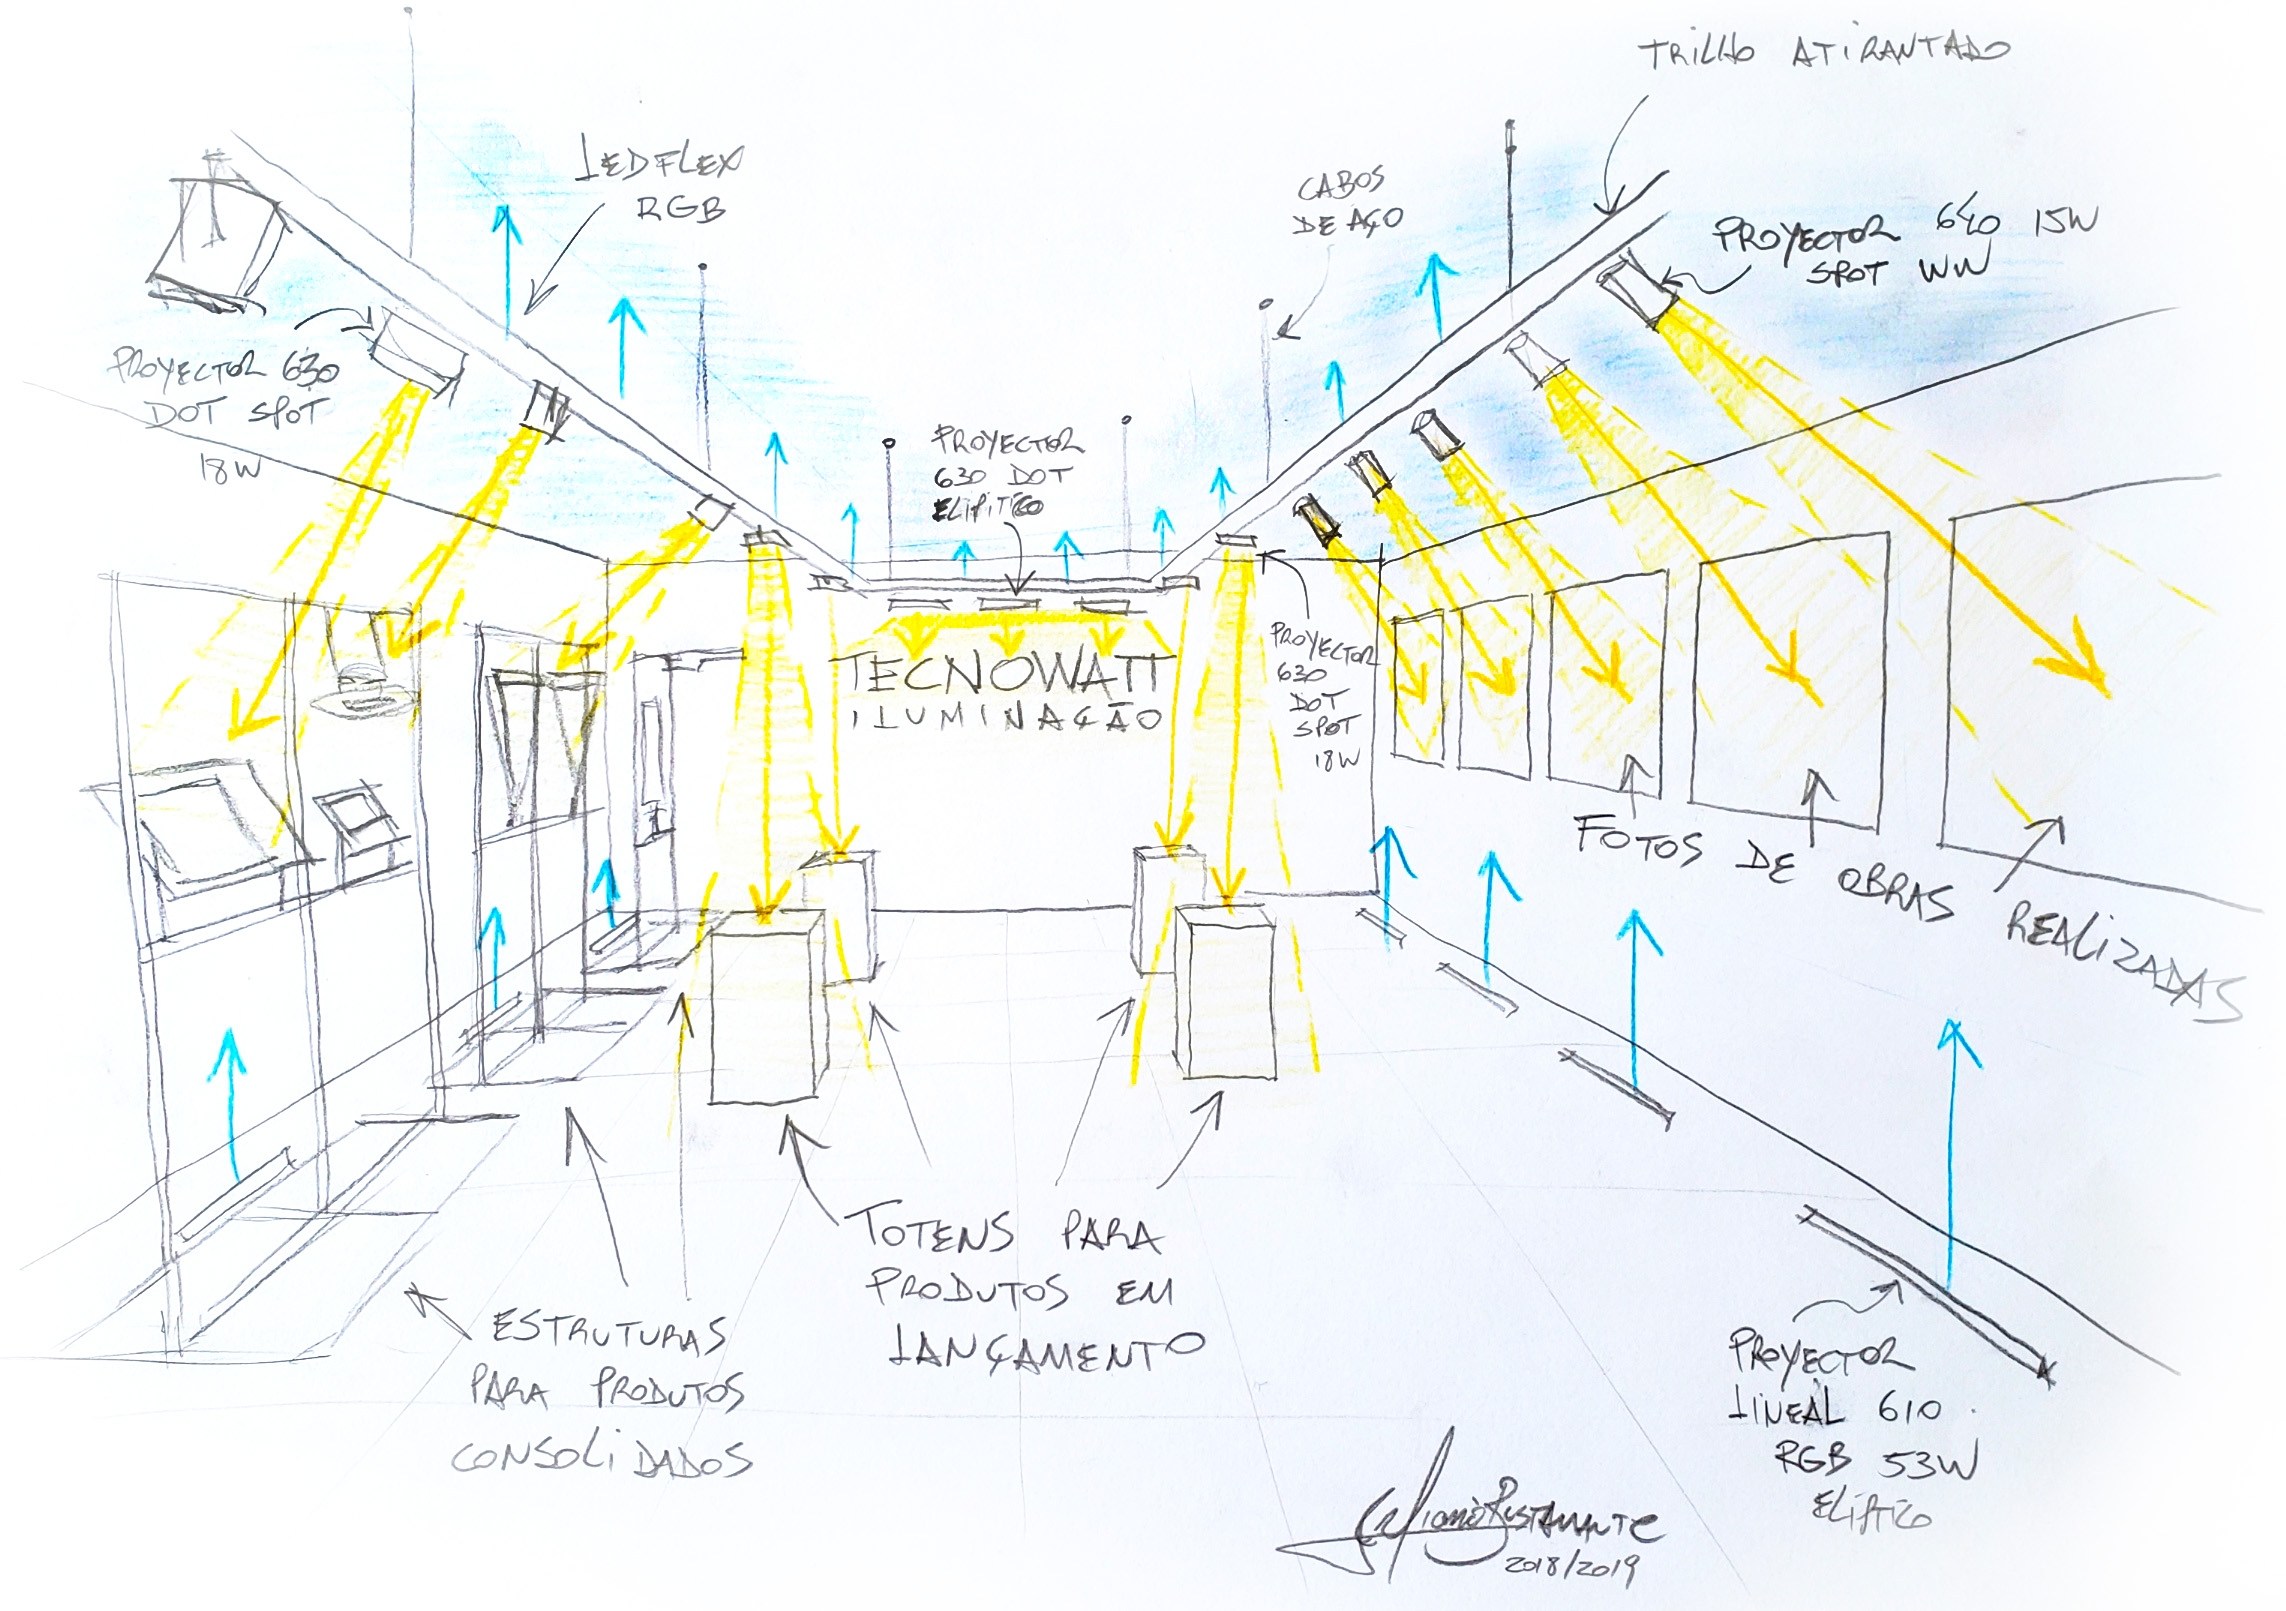 TRILHO ATIRANTADO
LEDFLEX
RGB
CABOS
DE AÇO
PROYECTOR 640 15W
SPOT WW
PROYECTOR 630
DOT SPOT
18W
PROYECTOR
630 DOT
ELIPITICO
TECNOWATT
ILUMINAÇÃO
PROYECTOR
630
DOT
SPOT
18W
FOTOS DE OBRAS REALIZADAS
TOTENS PARA
PRODUTOS EM
LANÇAMENTO
ESTRUTURAS
PARA PRODUTOS
CONSOLIDADOS
PROYECTOR
LINEAL 610
RGB 53W
ELIPTICO
2018/2019